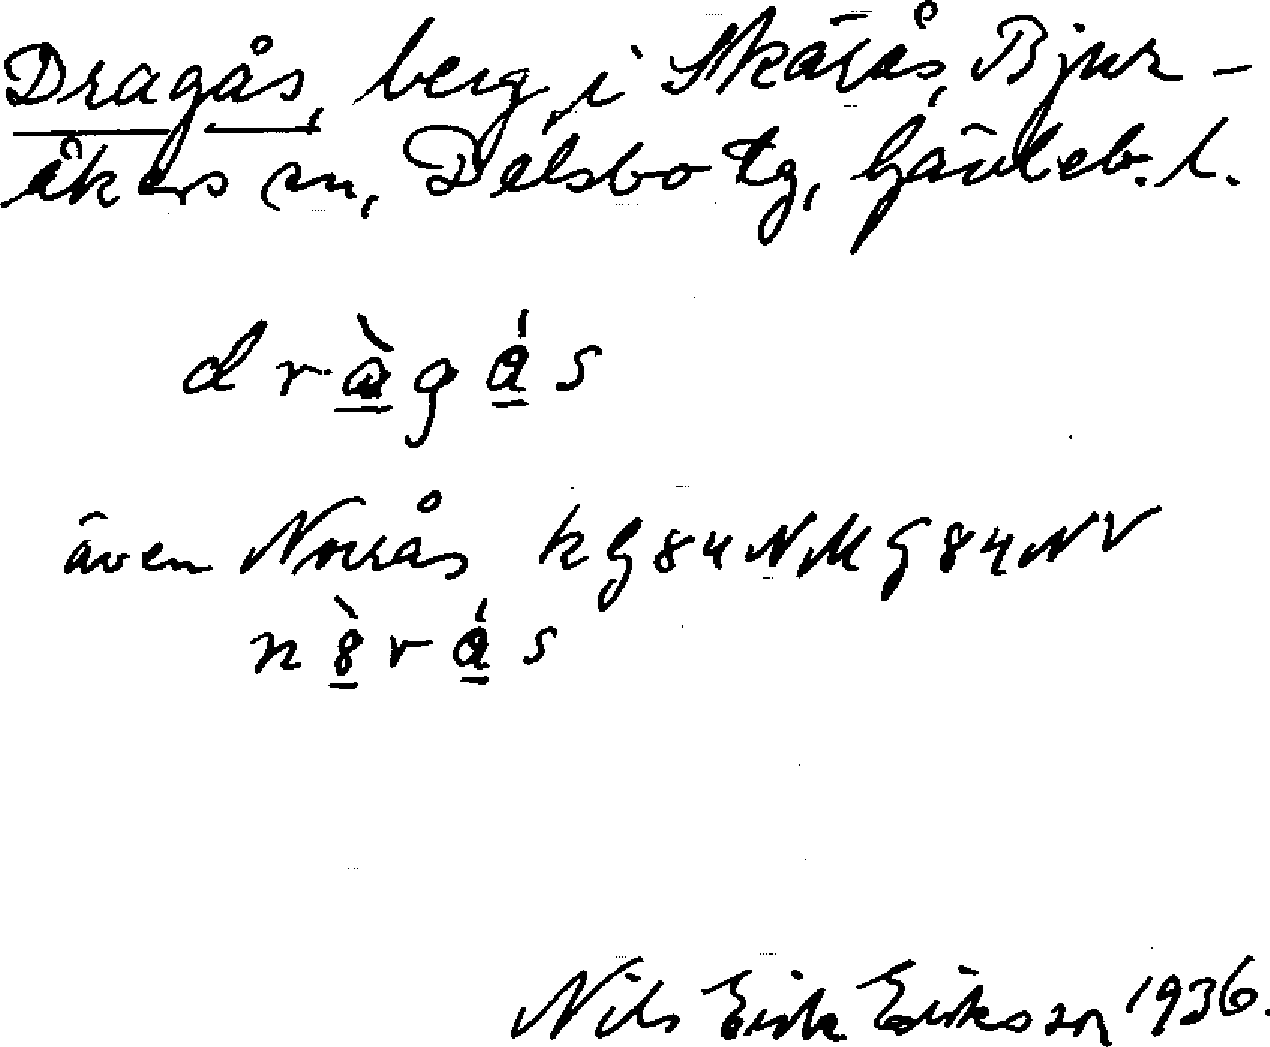 Dragås, berg, i Skärås, Bjur-
åkers sn, Delsbo tg, Gävleb. l.
dràgás
även Norrås kG84NMG84NV
n8̀rás
Nils Erik Eriksson 1936.